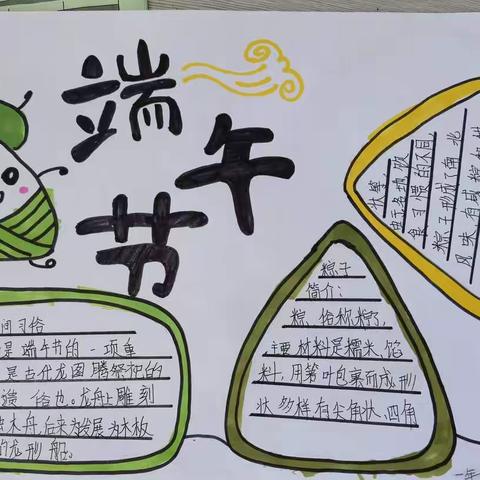 端午节
间习俗
是端午节的一项重
是古代龙图腾祭祀的
遗俗也。龙舟上雕刻
独木舟,后来发展为木板
的龙形艇。
粽子
简介:
粽,俗称粽子,
主要材料是糯米、馅
料,用箬叶包裹而成,形
状多样,有尖角状、四角
状等
由于各地饮
食习惯的不同,
粽子形成了南北
风味,有咸粽